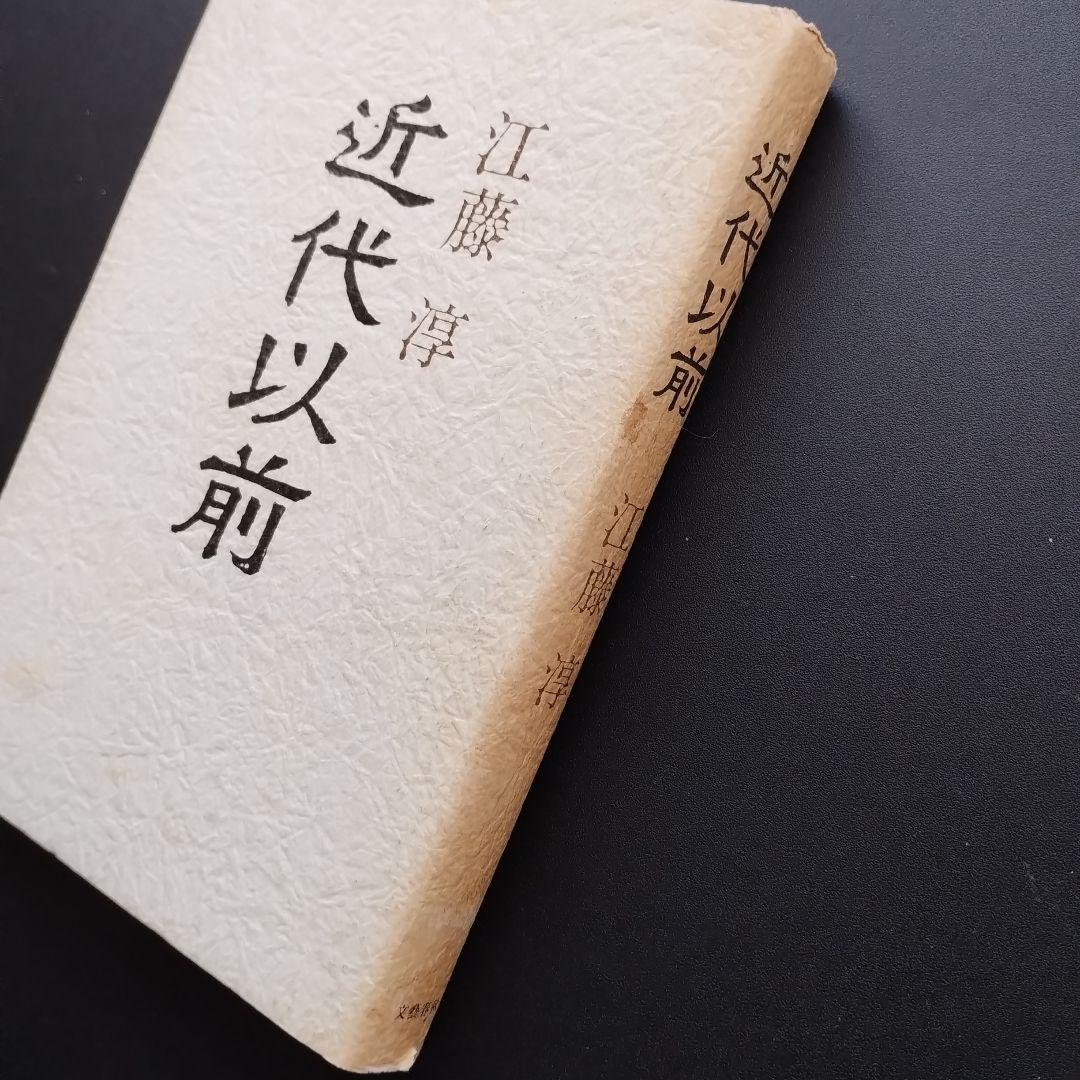 江藤 淳
近代以前
近代以前
江藤 淳
文藝春秋